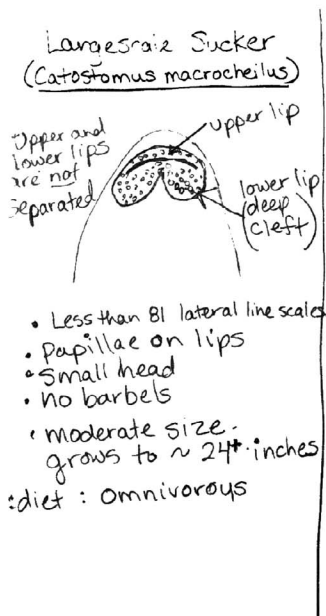 Largescale Sucker
(Catostomus macrocheilus)
Upper and
lower lips
are not
separated
upper lip
lower lip
(deep
cleft)
• Less than 81 lateral line scales
• Papillae on lips
• Small head
• no barbels
• moderate size.
grows to ~ 24+ inches
: diet : Omnivorous